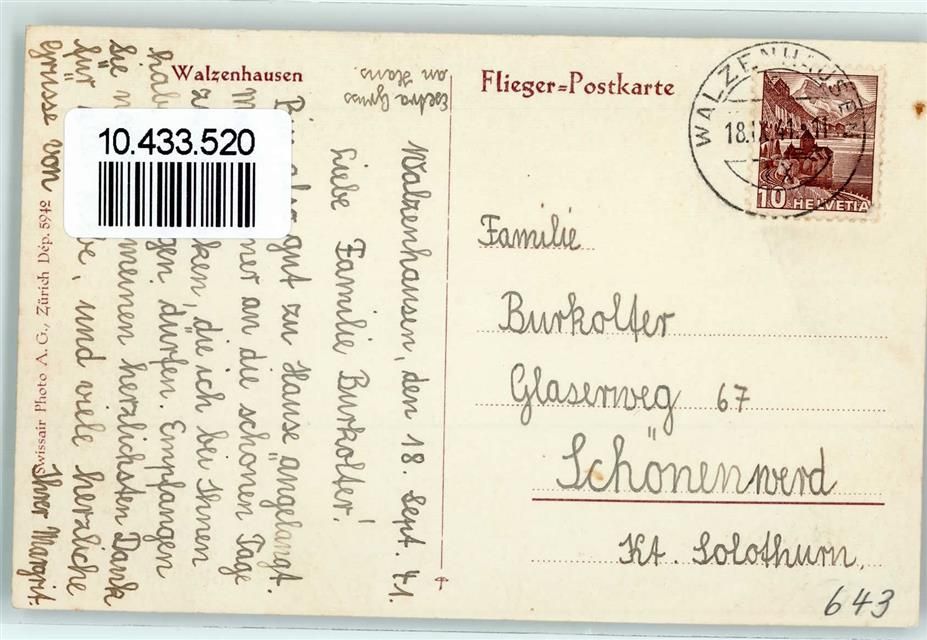 Walzenhausen
Flieger=Postkarte
WALZENHAUSEN
18.IX.41
10 HELVETIA
10.433.520
Extra Gruss
an Hans.
Walzenhausen, den 18. Sept. 41.
Liebe Familie Burkolter!
Bin gut zu Hause angelangt.
an die schönen Tage
die ich bei Ihnen
dürfen. Empfangen
Sie meinen herzlichsten Dank
für und viele herzliche
Grüsse von Ihrer Margrit.
Swissair Photo A. G., Zürich Dép. 5942
Familie
Burkolter
Glaserweg 67
Schönenwerd
Kt. Solothurn.
643